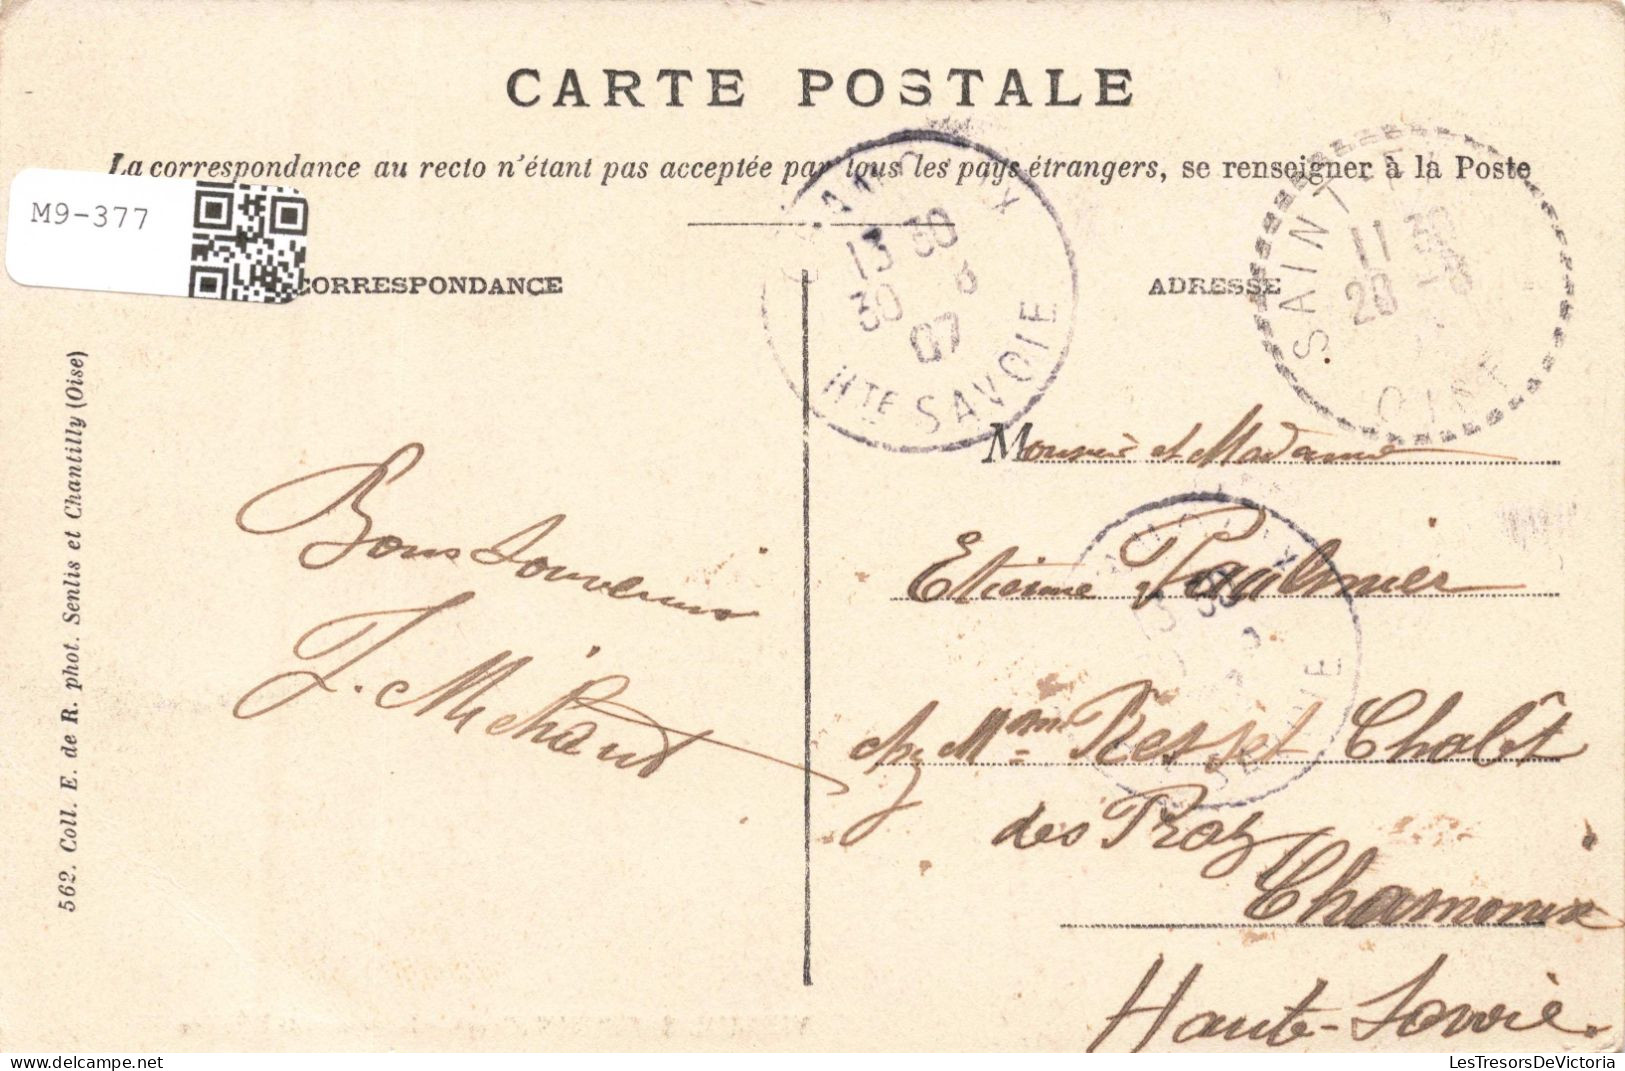 CARTE POSTALE
La correspondance au recto n'étant pas acceptée par tous les pays étrangers, se renseigner à la Poste
M9-377
CORRESPONDANCE
ADRESSE
CHAMONIX
13 30
30 8
07
HTE SAVOIE
SAINT
11 30
28 -8
OISE
Monsieur et Madame
Etienne Paulmier
chez Mme Resset Chalêt
des Praz
Chamonix
Haute-Savoie.
Bons Souvenirs
J. Michaud
562. Coll. E. de R. phot. Senlis et Chantilly (Oise)
LesTresorsDeVictoria